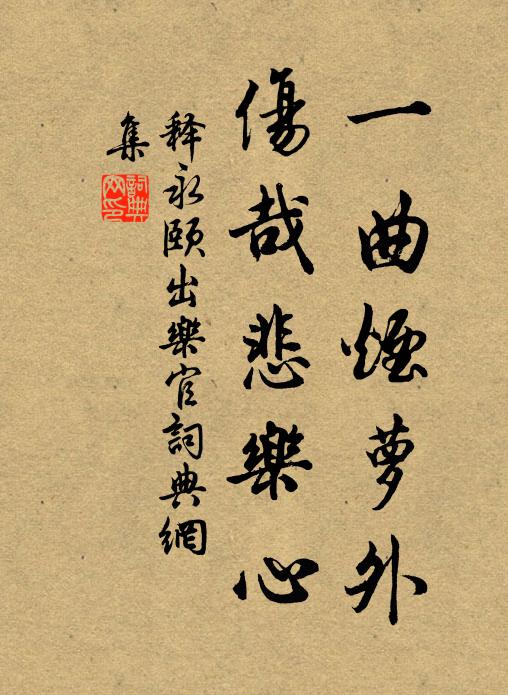 一曲煙蘿外
傷哉悲樂心
释永頤出樂官詞典網
集
詞典網印